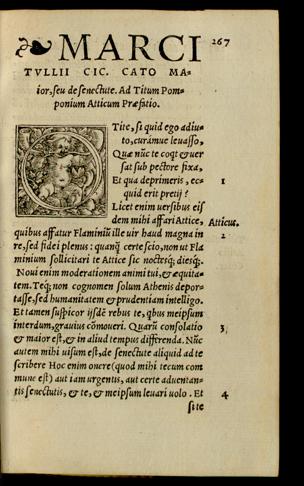 ❧ MARCI 267
TVLLII CIC. CATO MA-
ior, seu de senectute. Ad Titum Pom-
ponium Atticum Præfatio.
O Tite, si quid ego adiu-
to, curámue leuasso,
Quæ nūc te coqt & uer
sat sub pectore fixa,
Et qua deprimeris, ec- 1
quid erit pretij?
Licet enim uersibus eis
dem mihi affari Attice, Atticus.
quibus affatur Flaminiū ille uir haud magna in 2
re, sed fidei plenus: quanq̃ certe scio, non ut Fla
minium sollicitari te Attice sic noctesq;, diesq;.
Noui enim moderationem animi tui, & æquita-
tem. Teq; non cognomen solum Athenis depor-
tasse, sed humanitatem & prudentiam intelligo.
Et tamen suspicor ijsdē rebus te, qbus meipsum
interdum, grauius cōmoueri. Quarū consolatio 3
& maior est, & in aliud tempus differenda. Nūc
autem mihi uisum est, de senectute aliquid ad te
scribere Hoc enim onere (quod mihi tecum com
mune est) aut iam urgentis, aut certe aduentan-
tis senectutis, & te, & meipsum leuari uolo. Et 4
si te